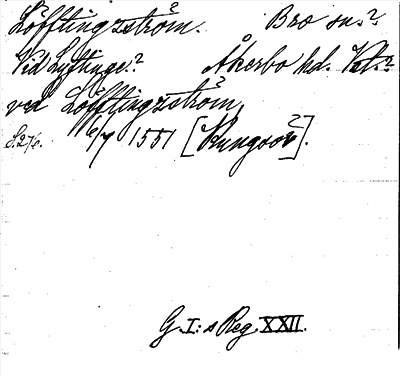 Löfflingzström. Bro sn.?
Vid Lyftinge? Åkerbo hd. Vst.?
ved Löfflingzström,
S. 276. 6/7 1551 [Kungsör?].
G. I:s Reg. XXII.